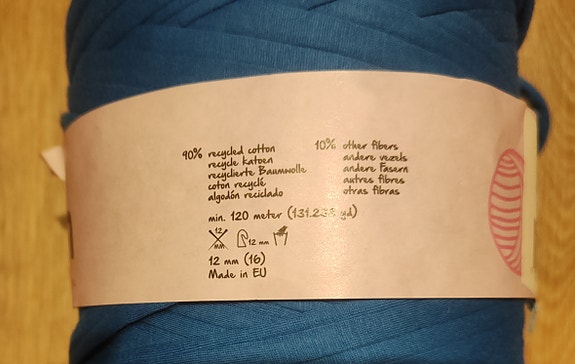 90% recycled cotton
recycle katoen
recyclierte Baumwolle
coton recyclé
algodón reciclado
10% other fibers
andere vezels
andere Fasern
autres fibres
otras fibras
min. 120 meter (131.233 yd)
12 mm
12 mm
12 mm (16)
Made in EU